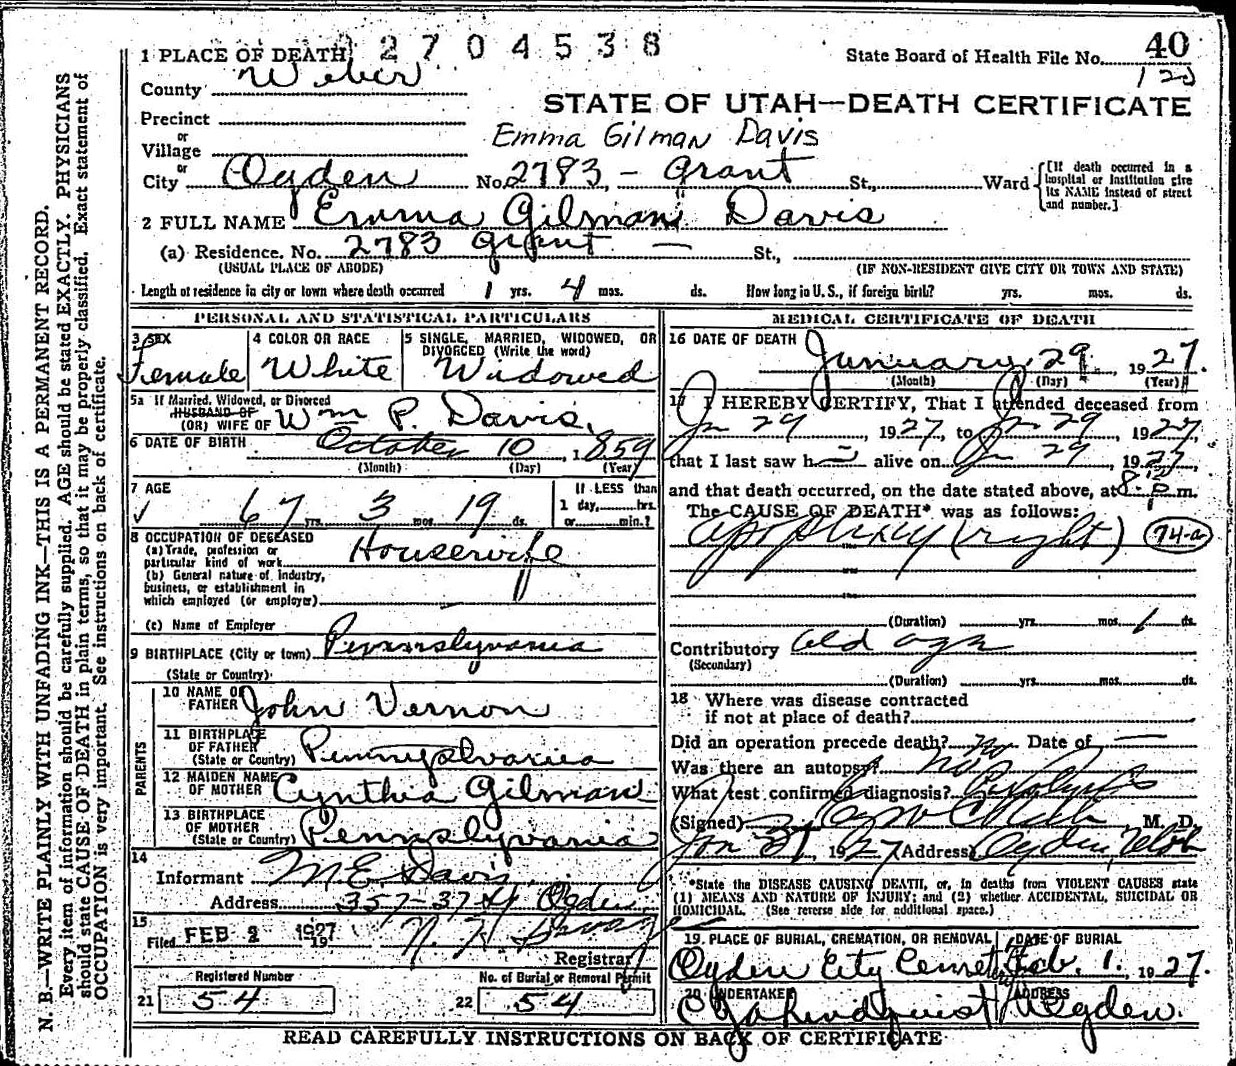 1 PLACE OF DEATH 2704538 State Board of Health File No. 40
County Weber
STATE OF UTAH—DEATH CERTIFICATE
Precinct
or
Village
Emma Gilman Davis
or
City Ogden No. 2783 - Grant St., Ward
[If death occurred in a hospital or Institution give its NAME instead of street and number.]
2 FULL NAME Emma Gilman Davis
(a) Residence. No. 2783 Grant — St.,
(USUAL PLACE OF ABODE) (IF NON-RESIDENT GIVE CITY OR TOWN AND STATE)
Length of residence in city or town where death occurred 1 yrs. 4 mos. ds. How long in U. S., if foreign birth? yrs. mos. ds.
PERSONAL AND STATISTICAL PARTICULARS
3 SEX 4 COLOR OR RACE 5 SINGLE, MARRIED, WIDOWED, OR DIVORCED (Write the word)
Female White Widowed
5a If Married, Widowed, or Divorced
HUSBAND OF
(OR) WIFE OF Wm P. Davis.
6 DATE OF BIRTH October 10, 1859
(Month) (Day) (Year)
7 AGE If LESS than
67 yrs. 3 mos. 19 ds. 1 day, hrs.
or min.?
8 OCCUPATION OF DECEASED
(a) Trade, profession or
particular kind of work Housewife
(b) General nature of industry,
business, or establishment in
which employed (or employer)
(c) Name of Employer
9 BIRTHPLACE (City or town) Pennnslyvania
(State or Country)
PARENTS
10 NAME OF
FATHER John Vernon
11 BIRTHPLACE
OF FATHER
(State or Country) Pennyslvania
12 MAIDEN NAME
OF MOTHER Cynthia Gilman
13 BIRTHPLACE
OF MOTHER
(State or Country) Pennslyvania
14
Informant M.E. Davis
Address 357-37th Ogden
15
Filed FEB 2 1927 19 N. H.
Registrar
Registered Number No. of Burial or Removal Permit
21 54 22 54
MEDICAL CERTIFICATE OF DEATH
16 DATE OF DEATH
January 29, 1927.
(Month) (Day) (Year)
17 I HEREBY CERTIFY, That I attended deceased from
Jan 29 1927, to Jan 29 1927,
that I last saw h alive on Jan 29 1927,
and that death occurred, on the date stated above, at 8 P m.
The CAUSE OF DEATH* was as follows:
apoplexy (right) 74-a
(Duration) yrs. mos. 1 ds.
Contributory old age
(Secondary)
(Duration) yrs. mos. ds.
18 Where was disease contracted
if not at place of death?
Did an operation precede death? no Date of —
Was there an autopsy? no
What test confirmed diagnosis? Paralysis
(Signed) M. D.
Jan 31, 1927 (Address) Ogden, Utah
*State the DISEASE CAUSING DEATH, or, in deaths from VIOLENT CAUSES state
(1) MEANS AND NATURE OF INJURY; and (2) whether ACCIDENTAL, SUICIDAL OR
HOMICIDAL. (See reverse side for additional space.)
19. PLACE OF BURIAL, CREMATION, OR REMOVAL DATE OF BURIAL
Ogden City Cemetery Feb. 1., 1927.
20 UNDERTAKER ADDRESS
Lindquist Ogden.
READ CAREFULLY INSTRUCTIONS ON BACK OF CERTIFICATE
N. B.—WRITE PLAINLY WITH UNFADING INK—THIS IS A PERMANENT RECORD.
Every item of information should be carefully supplied. AGE should be stated EXACTLY. PHYSICIANS
should state CAUSE OF DEATH in plain terms, so that it may be properly classified. Exact statement of
OCCUPATION is very important. See instructions on back of certificate.